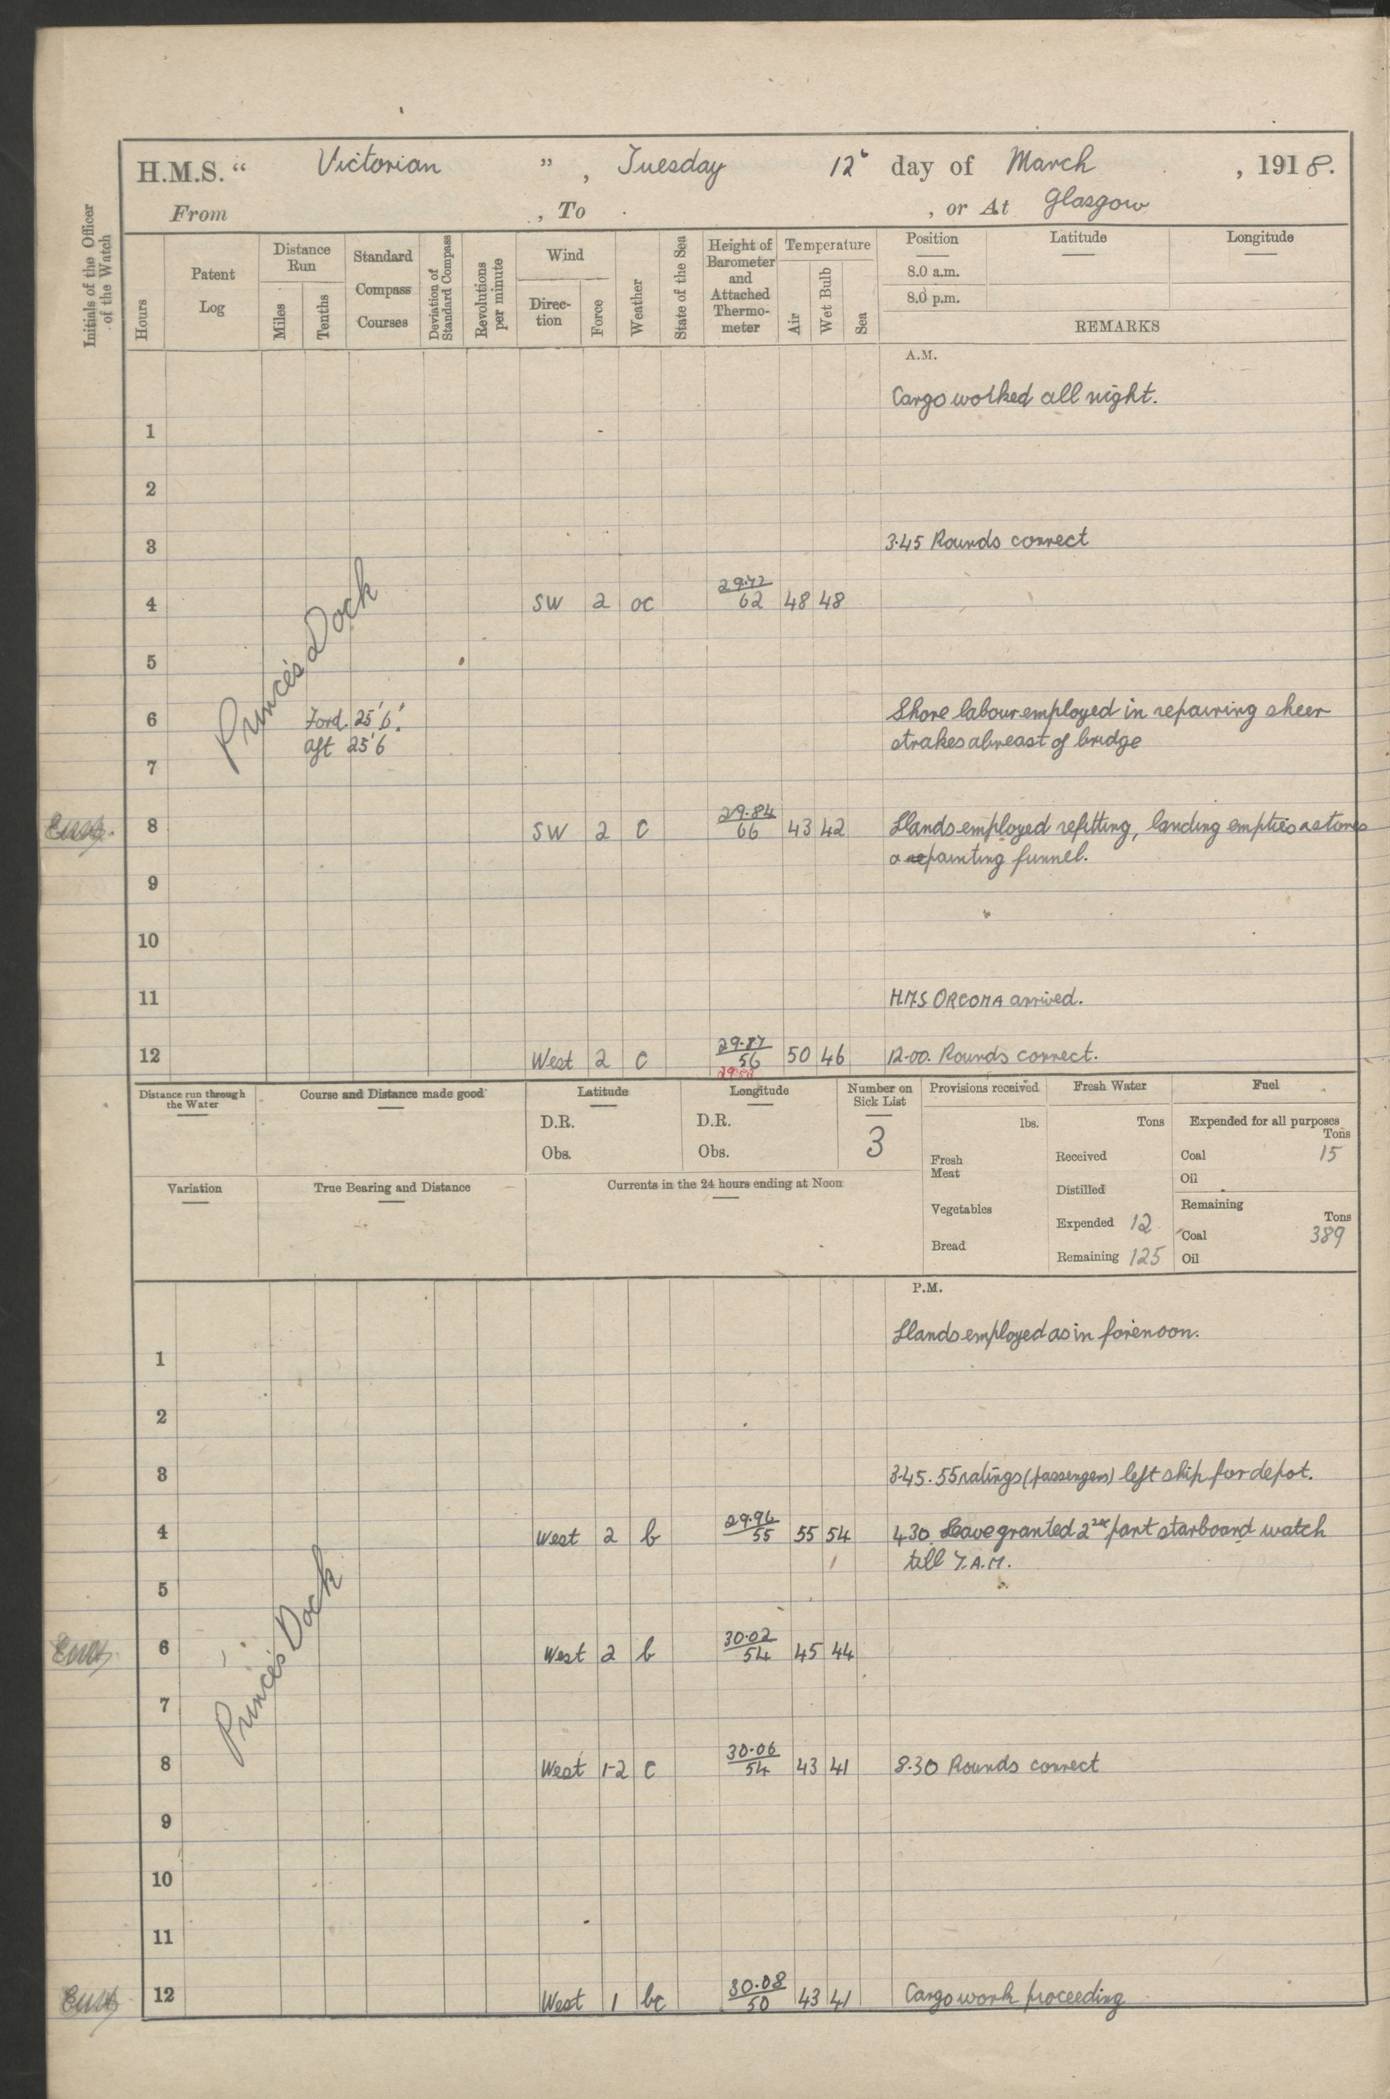 H.M.S. “ Victorian ” , Tuesday 12 day of March , 1918.
From , To , or At Glasgow
Initials of the Officer of the Watch
Hours
Patent Log
Distance Run
Miles
Tenths
Standard Compass Courses
Deviation of Standard Compass
Revolutions per minute
Wind
Direc-tion
Force
Weather
State of the Sea
Height of Barometer and Attached Thermo-meter
Temperature
Air
Wet Bulb
Sea
Position Latitude Longitude
8.0 a.m.
8.0 p.m.
REMARKS
A.M.
Cargo worked all night.
1
2
3 3.45 Rounds correct
Prince's Dock
4 SW 2 oc 29.72 62 48 48
5
6 Ford. 25'6". Shore labour employed in repairing sheer
aft 25'6 strakes abreast of bridge
7
8 SW 2 c 29.84 66 43 42 Hands employed refitting, landing empties & stores
& painting funnel.
9
10
11 H.M.S ORCOMA arrived.
12 West 2 c 29.87 56 50 46 12.00. Rounds correct.
29.88
Distance run through the Water
Course and Distance made good
Latitude
D.R.
Obs.
Longitude
D.R.
Obs.
Number on Sick List
3
Provisions received
lbs.
Fresh Meat
Vegetables
Bread
Fresh Water
Tons
Received
Distilled
Expended 12
Remaining 125
Fuel
Expended for all purposes
Tons
Coal 15
Oil
Remaining
Tons
Coal 389
Oil
Variation
True Bearing and Distance
Currents in the 24 hours ending at Noon
P.M.
Hands employed as in forenoon.
1
2
3 3.45. 55 ratings (passengers) left ship for depot.
4 West 2 b 29.96 55 55 54 4.30. Leave granted 2nd part starboard watch
till 7.A.M.
5
Prince's Dock
6 West 2 b 30.02 54 45 44
7
8 West 1-2 c 30.06 54 43 41 8.30 Rounds correct
9
10
11
12 West 1 bc 30.08 50 43 41 Cargo work proceeding